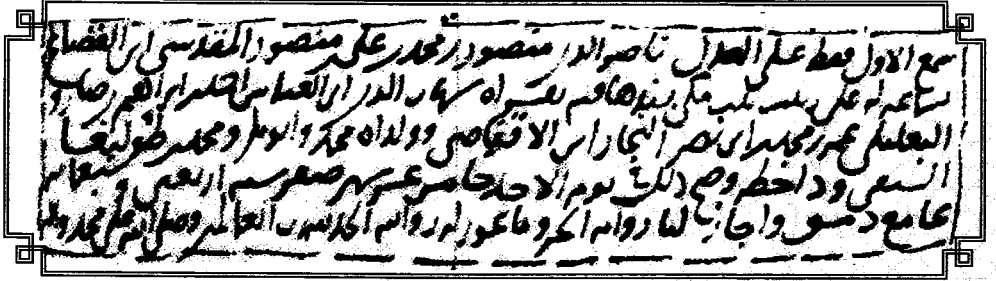 سمع الأول فقط على العدل ناصر الدين منصور بن محمد بن علي بن منصور المقدسي ابن القضاع
بسماعه له على بنده فيه بقراءة شهاب الدين أبي العباس أحمد إبراهيم
البعلبكي عمر بن محمد بن أبي نصر النجار ابن الأقفاصي وولداه محمد وأبو بكر ومحمد بن طوليغا
السيفي وذا خطه وصح ذلك يوم الأحد خامس عشر شهر صفر سنة أربعين وسبعمائة
بجامع دمشق وأجاز لنا رواية الجزء وما يجوز له روايته الحمد لله رب العالمين وصلى الله على محمد وآله